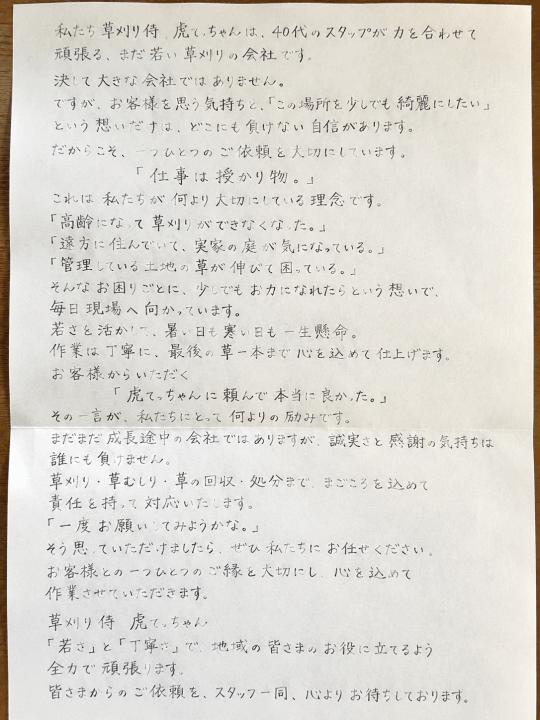 私たち 草刈り侍 虎てっちゃんは、40代のスタッフが力を合わせて
頑張る、まだ若い草刈りの会社です。
決して大きな会社ではありません。
ですが、お客様を思う気持ちと、「この場所を少しでも綺麗にしたい」
という想いだけは、どこにも負けない自信があります。
だからこそ、一つひとつのご依頼を大切にしています。
「仕事は授かり物。」
これは私たちが何より大切にしている理念です。
「高齢になって草刈りができなくなった。」
「遠方に住んでいて、実家の庭が気になっている。」
「管理している土地の草が伸びて困っている。」
そんなお困りごとに、少しでもお力になれたらという想いで、
毎日現場へ向かっています。
若さを活かして、暑い日も寒い日も一生懸命。
作業は丁寧に、最後の草一本まで心を込めて仕上げます。
お客様からいただく
「虎てっちゃんに頼んで本当に良かった。」
その一言が、私たちにとって何よりの励みです。
まだまだ成長途中の会社ではありますが、誠実さと感謝の気持ちは
誰にも負けません。
草刈り・草むしり・草の回収・処分まで、まごころを込めて
責任を持って対応いたします。
「一度お願いしてみようかな。」
そう思っていただけましたら、ぜひ私たちにお任せください。
お客様との一つひとつのご縁を大切にし、心を込めて
作業させていただきます。
草刈り侍 虎てっちゃん
「若さ」と「丁寧さ」で、地域の皆さまのお役に立てるよう
全力で頑張ります。
皆さまからのご依頼を、スタッフ一同、心よりお待ちしております。